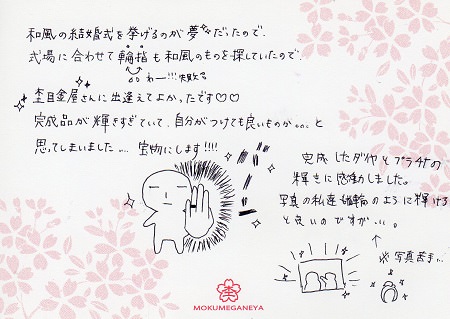 和風の結婚式を挙げるのが夢だったので、
式場に合わせて輪指も和風のものを探していたので、
わー!!!失敗
杢目金屋さんに出逢えてよかったです♡♡
完成品が輝きすぎていて、自分がつけても良いものか...と
思ってしまいました... 宝物にします!!!!
完成したダイヤとプラチナの
輝きに感動しました。
写真の私達も輪のように輝ける
と良いのですが...。
写真苦手...
MOKUMEGANEYA